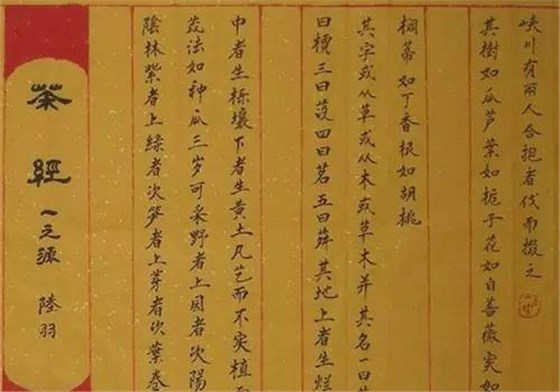 峽川有兩人合抱者伐而掇之
其樹如瓜芦葉如梔子花如白薔薇実如
栟蒂如丁香根如胡桃
其字或从草或从木或草木并其名一曰
曰檟三曰蔎四曰茗五曰荈其地上者生爛
中者生栎壤下者生黄土凡艺而不实植而
茂法如种瓜三岁可采野者上园者次陽
陰林紫者上緑者次笋者上芽者次葉卷
茶經 一之源 陸羽